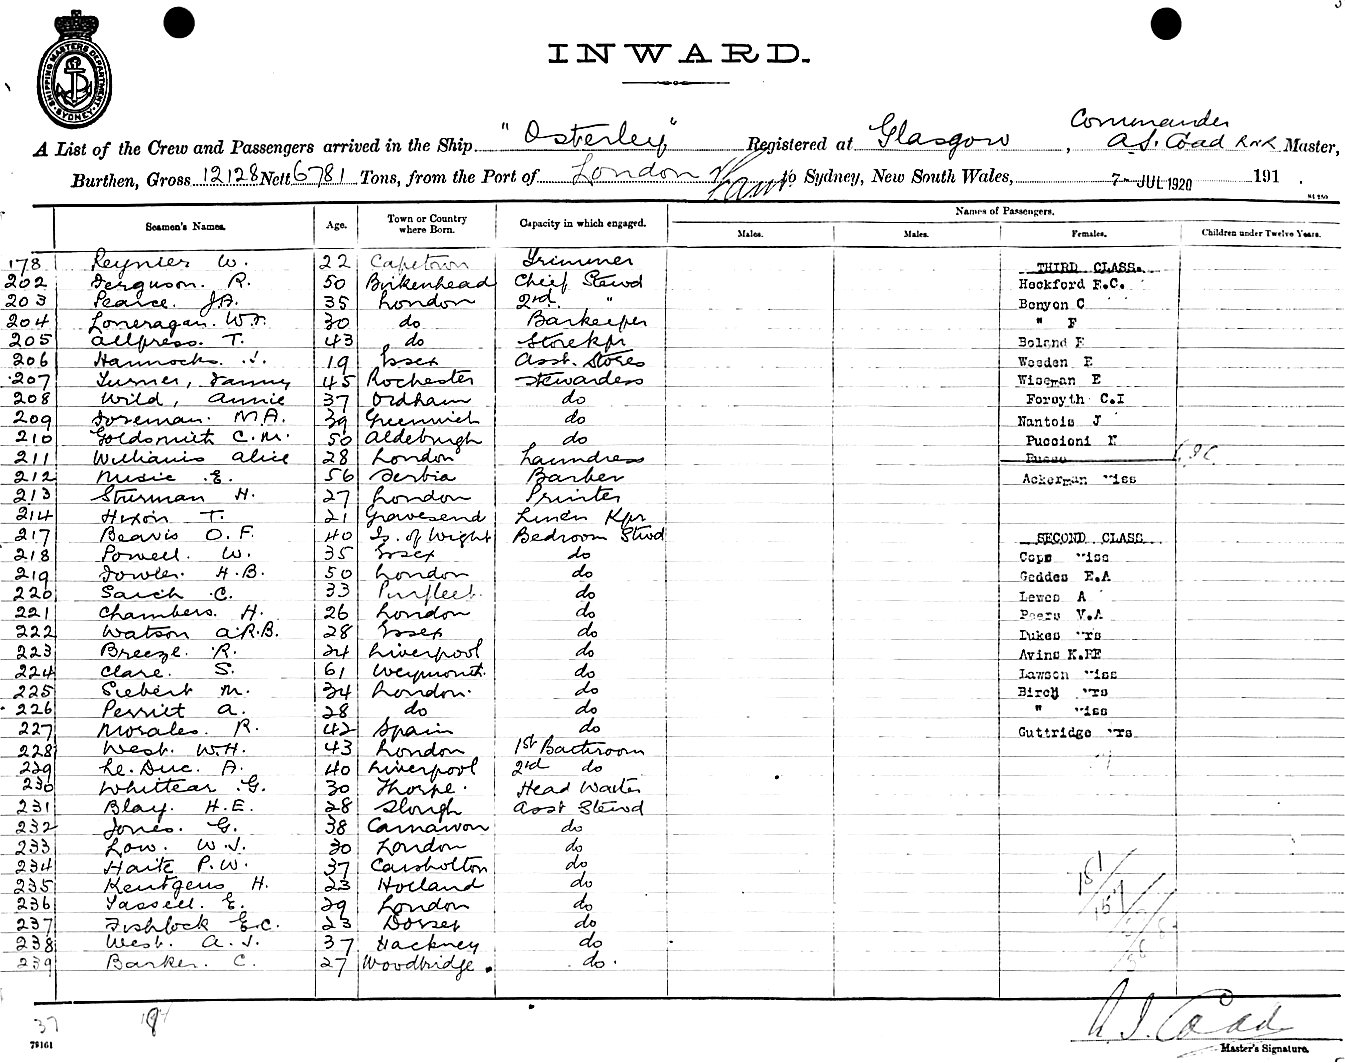 SHIPPING MASTERS DEPARTMENT SYDNEY
INWARD.
Commander
A List of the Crew and Passengers arrived in the Ship "Osterley" Registered at Glasgow, A.J. Coad RNR Master,
Burthen, Gross 12128 Nett 6781 Tons, from the Port of London to Sydney, New South Wales, 7- JUL 1920 191 .
Names of Passengers.
Seamen's Names. Age. Town or Country where Born. Capacity in which engaged. Males. Males. Females. Children under Twelve Years.
178 Reynier W. 22 Capetown Trimmer THIRD CLASS.
202 Ferguson. R. 50 Birkenhead Chief Stewd Heckford E.C.
203 Pearce. JA. 35 London 2nd. " Benyon C
204 Loneragan. W.J. 30 do Barkeeper " F
205 Allpress. T. 43 do Storekpr Boland E
206 Hannocks. J. 19 Essex Asst. Stores Weeden E
207 Turner, Fanny 45 Rochester Stewardess Wiseman E
208 Wild, Annie 37 Oldham do Forsyth C.I
209 Foreman. M.A. 39 Greenwich do Nantois J
210 Goldsmith C.M. 50 Aldeburgh do Puccioni N
211 Williams Alice 28 London Laundress
212 Music .E. 56 Serbia Barber Ackerman Miss
213 Sturman H. 27 London Printer
214 Hixon T. 21 Gravesend Linen Kpr
217 Beavis O.F. 40 Is. of Wight Bedroom Stwd SECOND CLASS
218 Powell. W. 35 Essex do Cope Miss
219 Fowler. H.B. 50 London do Geddes E.A
220 Saich .C. 33 Purfleet. do Lewes A
221 Chambers. H. 26 London do Peers V.A
222 Watson A.R.B. 28 Essex do Dukes Mrs
223 Breeze. R. 24 Liverpool do Avins K.FE
224 Clare. S. 61 Weymouth. do Lawson Miss
225 Siebert M. 34 London. do Birch Mrs
226 Perritt A. 28 do do " Miss
227 Morales. R. 42 Spain do Guttridge Mrs
228 West. W.H. 43 London 1st Bathroom
229 Le.Duc. A. 40 Liverpool 2nd do
230 Whittear .G. 30 Thorpe. Head Waiter
231 Blay. H.E. 28 Slough Asst Stewd
232 Jones. G. 38 Carnarvon do
233 Low. W.J. 30 London do
234 Haite P.W. 37 Carshalton do
235 Kentgens H. 23 Holland do
236 Tassell. E. 29 London do
237 Fishlock E.C. 23 Dorset do
238 West. A.J. 37 Hackney do
239 Barker. C. 27 Woodbridge. do.
151
157
37
A.J. Coad
79161 Master's Signature.